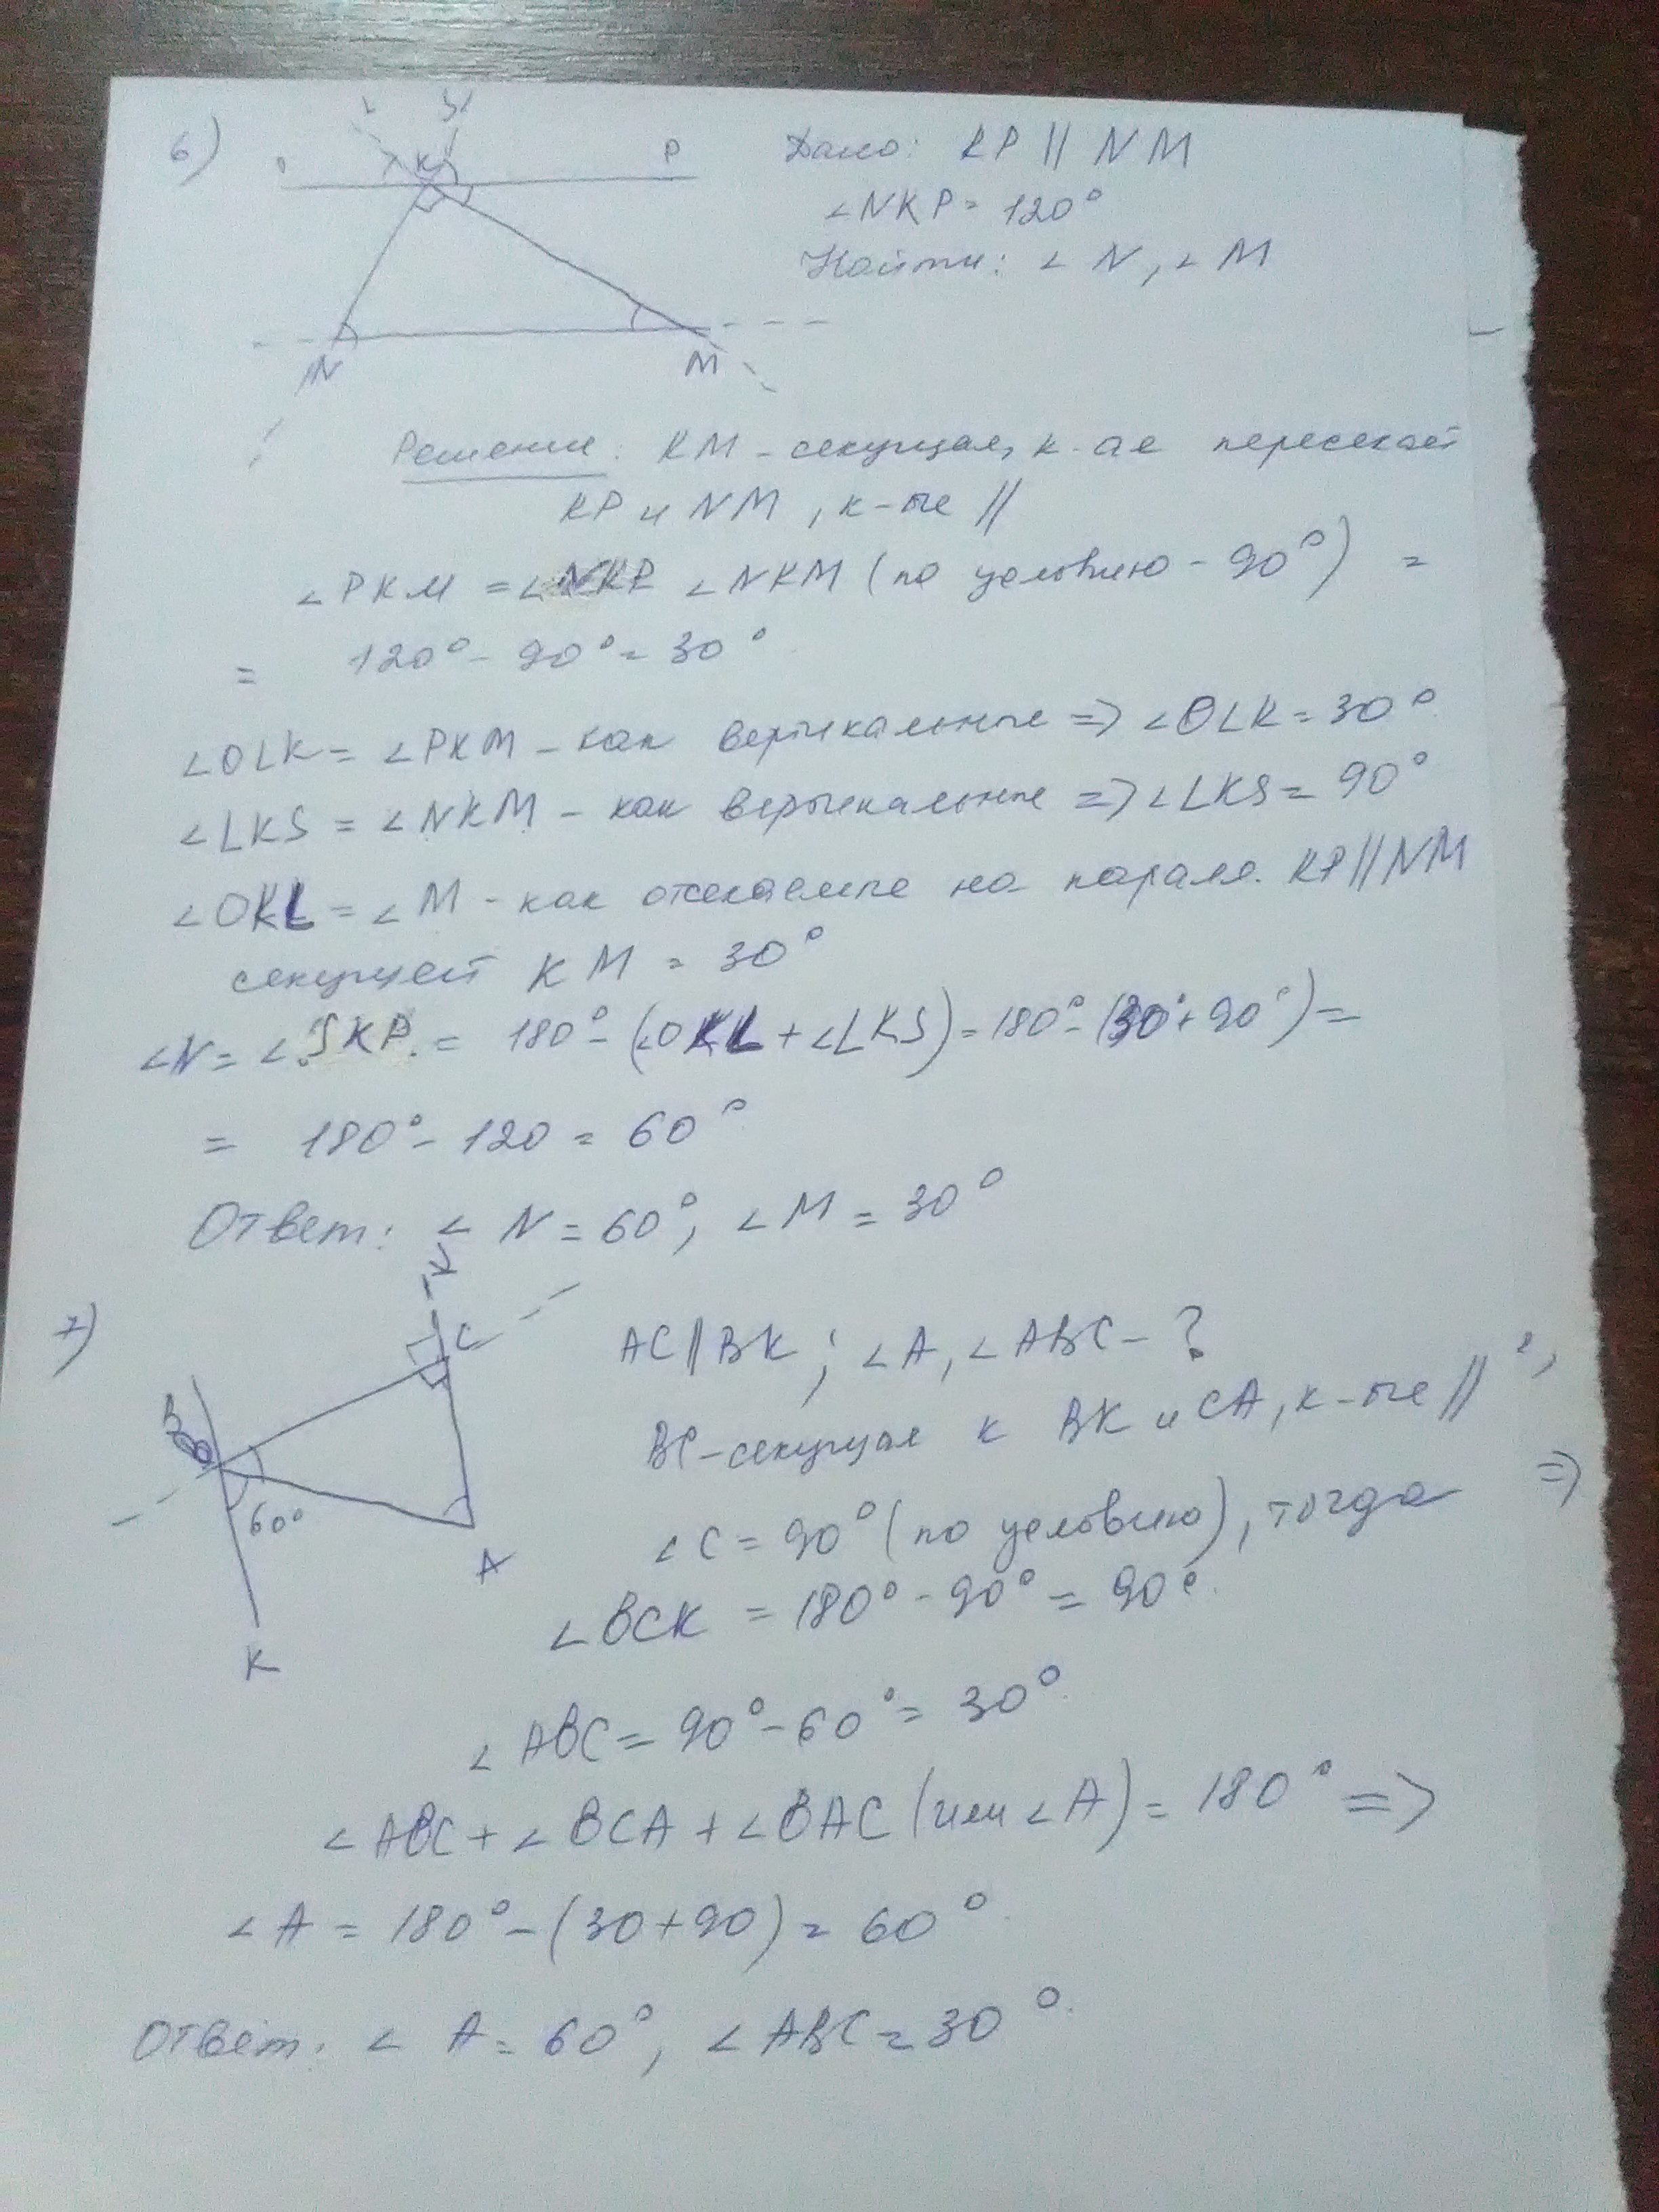 6)
S
K
P
N
M
Дано: KP || NM
∠NKP = 120°
Найти: ∠N, ∠M
Решение: KM - секущая, к-ая пересекает
KP и NM, к-ые ||
∠PKM = ∠NKP ∠NKM (по условию - 90°) =
= 120° - 90° = 30°
∠OLK = ∠PKM - как вертикальные => ∠OLK = 30°
∠LKS = ∠NKM - как вертикальные => ∠LKS = 90°
∠OKL = ∠M - как отсекаемые на паралл. KP || NM
секущей KM = 30°
∠N = ∠SKP = 180° - (∠OKL + ∠LKS) = 180° - (30° + 90°) =
= 180° - 120 = 60°
Ответ: ∠N = 60°, ∠M = 30°
7)
K
C
B
60°
A
K
AC || BK; ∠A, ∠ABC - ?
BC - секущая к BK и CA, к-ые ||
∠C = 90° (по условию), тогда =>
∠BCK = 180° - 90° = 90°.
∠ABC = 90° - 60° = 30°.
∠ABC + ∠BCA + ∠BAC (или ∠A) = 180° =>
∠A = 180° - (30 + 90) = 60°.
Ответ: ∠A = 60°, ∠ABC = 30°.